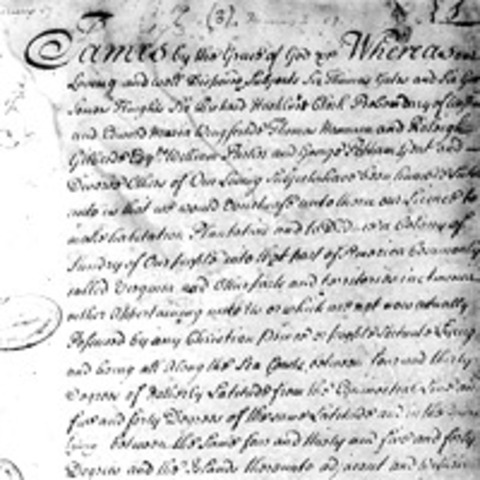 (3)
James by the Grace of God &c Whereas our
Loving and well Disposed Subjects Sir Thomas Gates and Sir Geo
Somers Knights Richard Clerk Prebendary of
and Edward Maria Wingfield Thomas Hannam and Raleigh
Gilbert Esqrs William Parker and George Popham Gent and
Divers Others of Our Loving Subjects have been humble
unto us that we would vouchsafe unto them our Licence to
make habitation Plantation and to a Colony of
Sundry of Our People into that part of America Commonly
called Virginia and Other parts and territories in America
either Appertaining unto Us or which are not now actually
Possessed by any Christian Prince or People Scituate Lying
and being all Along the Sea Coasts between four and thirty
Degrees of Latitude from the Equinoctial Line and
five and forty Degrees of the same Latitude and in the
lying between the same four and thirty and five and forty
Degrees and the Islands thereunto adjacent and